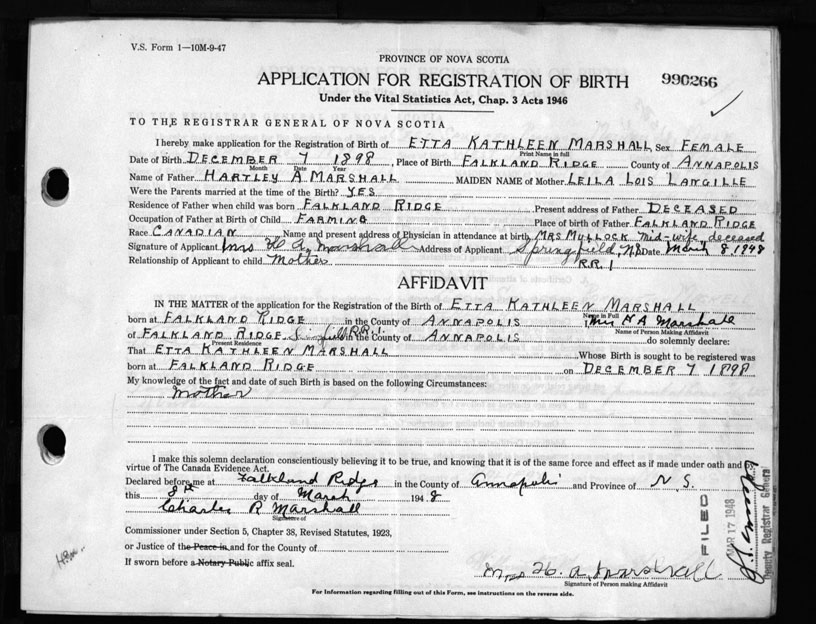 V.S. Form 1—10M-9-47
PROVINCE OF NOVA SCOTIA
APPLICATION FOR REGISTRATION OF BIRTH 990266
Under the Vital Statistics Act, Chap. 3 Acts 1946
TO THE REGISTRAR GENERAL OF NOVA SCOTIA
I hereby make application for the Registration of Birth of ETTA KATHLEEN MARSHALL, Sex FEMALE
Print Name in full
Date of Birth DECEMBER 7 1898, Place of Birth FALKLAND RIDGE County of ANNAPOLIS
Month Date Year
Name of Father HARTLEY A MARSHALL MAIDEN NAME of Mother LEILA LOIS LANGILLE
Were the Parents married at the time of the Birth? YES
Residence of Father when child was born FALKLAND RIDGE Present address of Father DECEASED
Occupation of Father at Birth of Child FARMING Place of birth of Father FALKLAND RIDGE
Race CANADIAN Name and present address of Physician in attendance at birth MRS MULLOCK mid-wife, deceased
Signature of Applicant Mrs H A Marshall Address of Applicant Springfield, Date March 8 1948
Relationship of Applicant to child Mother R.R. 1
AFFIDAVIT
IN THE MATTER of the application for the Registration of the Birth of ETTA KATHLEEN MARSHALL
Name in Full
born at FALKLAND RIDGE in the County of ANNAPOLIS I, Mrs H A Marshall
Name of Person Making Affidavit
of FALKLAND RIDGE R.R. 1. in the County of ANNAPOLIS do solemnly declare:
Present Residence
That ETTA KATHLEEN MARSHALL Whose Birth is sought to be registered was
born at FALKLAND RIDGE on DECEMBER 7 1898
My knowledge of the fact and date of such Birth is based on the following Circumstances:
Mother
I make this solemn declaration conscientiously believing it to be true, and knowing that it is of the same force and effect as if made under oath and by
virtue of The Canada Evidence Act.
Declared before me at Falkland Ridge in the County of Annapolis and Province of N. S.
this 8th day of March 1948
Charles R Marshall
Signature of
Commissioner under Section 5, Chapter 38, Revised Statutes, 1923,
or Justice of the Peace is, and for the County of
If sworn before a Notary Public affix seal.
Mrs H. A. Marshall
Signature of Person making Affidavit
For Information regarding filling out of this Form, see instructions on the reverse side.
FILED
MAR 17 1948
Deputy Registrar General